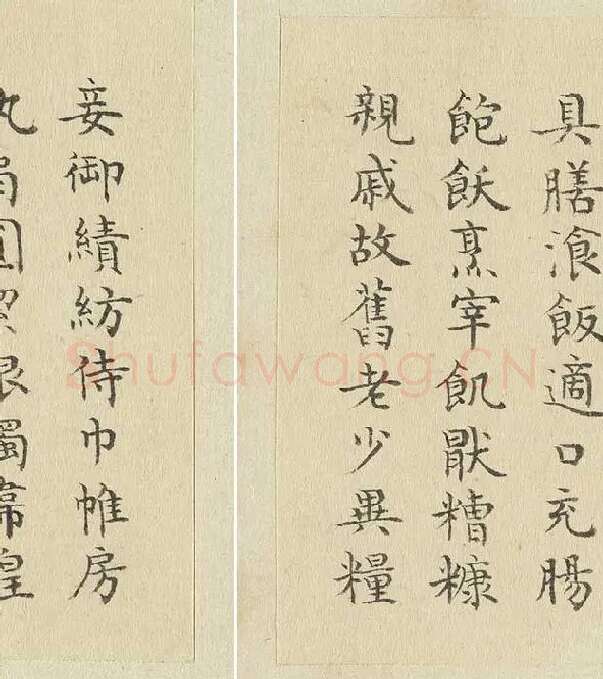 具膳湌飯適口充腸
飽飫烹宰飢猒糟糠
親戚故舊老少異糧
妾御績紡侍巾帷房
扇圓
Shufawang.CN